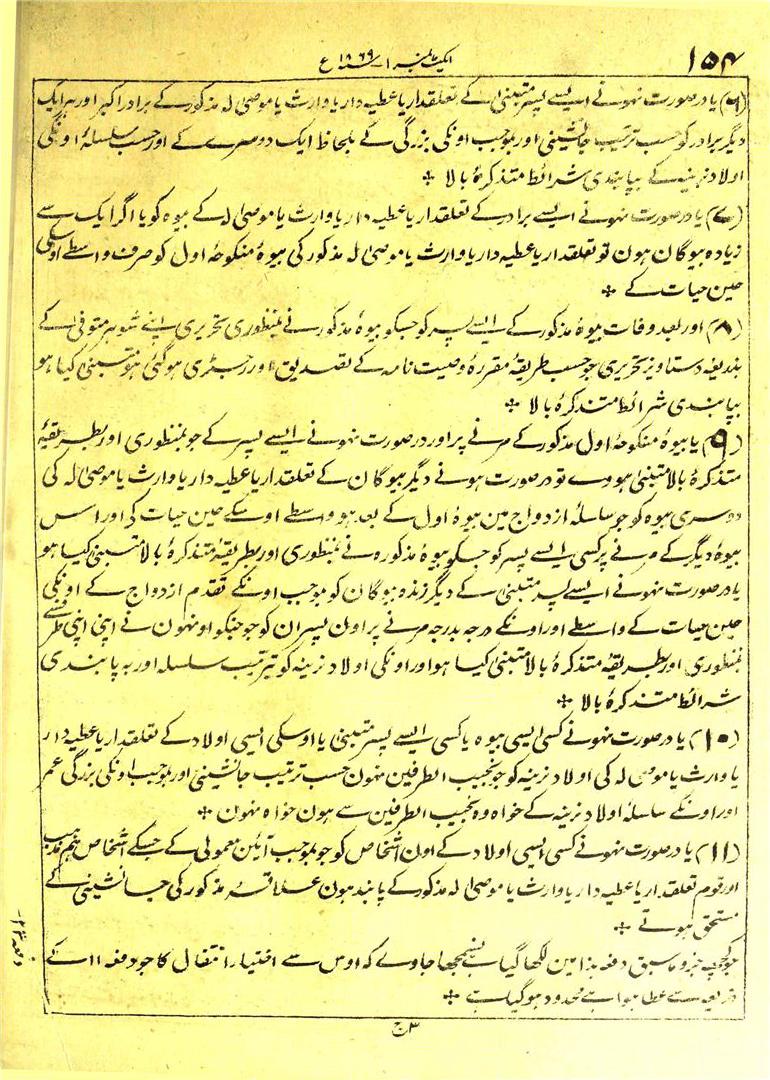 ۱۵۴
ایکٹ نمبر ۱ سنہ ۱۸۶۹ ع
(۶) یا درصورت نہونے ایسے پسر متبنیٰ کے تعلقدار یا عطیہ دار یا وارث یا موصیٰ لہ مذکور کے برادر اکبر اور ہر ایک
دیگر برادر کو حسب ترتیب جانشینی اور بموجب اونکی بزرگی کے بلحاظ ایک دوسرے کے اور حسب سلسلہٴ اونکی
اولاد نرینہ کے بپابندی شرائط متذکرہٴ بالا ✤
(۷) یا درصورت نہونے ایسے برادر کے تعلقدار یا عطیہ دار یا وارث یا موصیٰ لہ کے بیوہ کو یا اگر ایک سے
زیادہ بیوگان ہون تو تعلقدار یا عطیہ دار یا وارث یا موصیٰ لہ مذکور کی بیوہٴ منکوحہٴ اول کو صرف واسطے اوسکی
حین حیات کے ✤
(۸) اور بعد وفات بیوہٴ مذکور کے ایسے پسر کو جسکو بیوہٴ مذکور نے بمنظوری تحریری اپنے شوہر متوفیٰ کے
بذریعہ دستاویز تحریری جو حسب طریقہٴ مقررہٴ وصیت نامہ کے تصدیق اور رجسٹری ہوگئی ہو متبنیٰ کیا ہو
بپابندی شرائط متذکرہٴ بالا ✤
(۹) یا بیوہٴ منکوحہٴ اول مذکور کے مرنے پر اور درصورت نہونے ایسے پسر کے جو بمنظوری اور بطریقہٴ
متذکرہٴ بالا متبنیٰ ہووے تو درصورت ہونے دیگر بیوگان کے تعلقدار یا عطیہ دار یا وارث یا موصیٰ لہ کی
دوسری بیوہ کو جو سلسلہٴ ازدواج مین بیوہٴ اول کے بعد ہو واسطے اوسکے حین حیات کی اور اس
بیوہٴ دیگر کے مرنے پر کسی ایسے پسر کو جسکو بیوہٴ مذکورہ نے بمنظوری اور بطریقہٴ متذکرہٴ بالا متبنیٰ کیا ہو
یا درصورت نہونے ایسے پسر متبنیٰ کے دیگر زندہ بیوگان کو بموجب اونکے تقدم ازدواج کے اونکی
حین حیات کے واسطے اور اونکے درجہ بدرجہ مرنے پر اون پسران کو جنکو اونہون نے اپنی اپنی طرف سے
بمنظوری اور بطریقہٴ متذکرہٴ بالا متبنیٰ کیا ہو اور اونکی اولاد نرینہ کو بترتیب سلسلہ اور بہ پابندی
شرائط متذکرہٴ بالا ✤
(۱۰) یا درصورت نہونے کسی ایسی بیوہ یا کسی ایسے پسر متبنیٰ یا اوسکی ایسی اولاد کے تعلقدار یا عطیہ دار
یا وارث یا موصیٰ لہ کی اولاد نرینہ کو جو نجیب الطرفین نہون حسب ترتیب جانشینی اور بموجب اونکی بزرگی عمر
اور اونکے سلسلہٴ اولاد نرینہ کے خواہ وہ نجیب الطرفین سے ہون خواہ نہون ✤
(۱۱) یا درصورت نہونے کسی ایسی اولاد کے اون اشخاص کو جو بموجب آئین معمولی کے جسکے اشخاص ہم مذہب
اور قوم تعلقدار یا عطیہ دار یا وارث یا موصیٰ لہ مذکور کے پابند ہون علاقہٴ مذکور کی جانشینی کے
مستحق ہوتے ✤
جو کچھہ جزو ماسبق دفعہ ہٰذا مین لکھا گیا ہے یہ نسمجھا جاوے کہ اوس سے اختیار انتقال کا جو دفعہ ۱۱ کے
ذریعہ سے عطا ہوا ہے محدود ہو گیا ہے ✤
دفعہ ۲۳-
ج۳